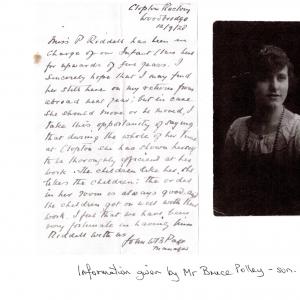 Clopton Rectory
Woodbridge
12/9/28
Miss P Riddell has been in
charge of our Infant Class here
for upwards of five years. I
sincerely hope that I may find
her still here on my return from
abroad next year: but in case
she should move or be moved, I
take this opportunity of saying
that during the whole of her time
at Clopton she has shown herself
to be thoroughly efficient at her
work. The children like her, she
likes the children: the order
in her room is always good, and
the children get on well with their
work. I feel that we have been
very fortunate in having Miss
Riddell with us
John
Manager
Information given by Mr Bruce Polley - son.